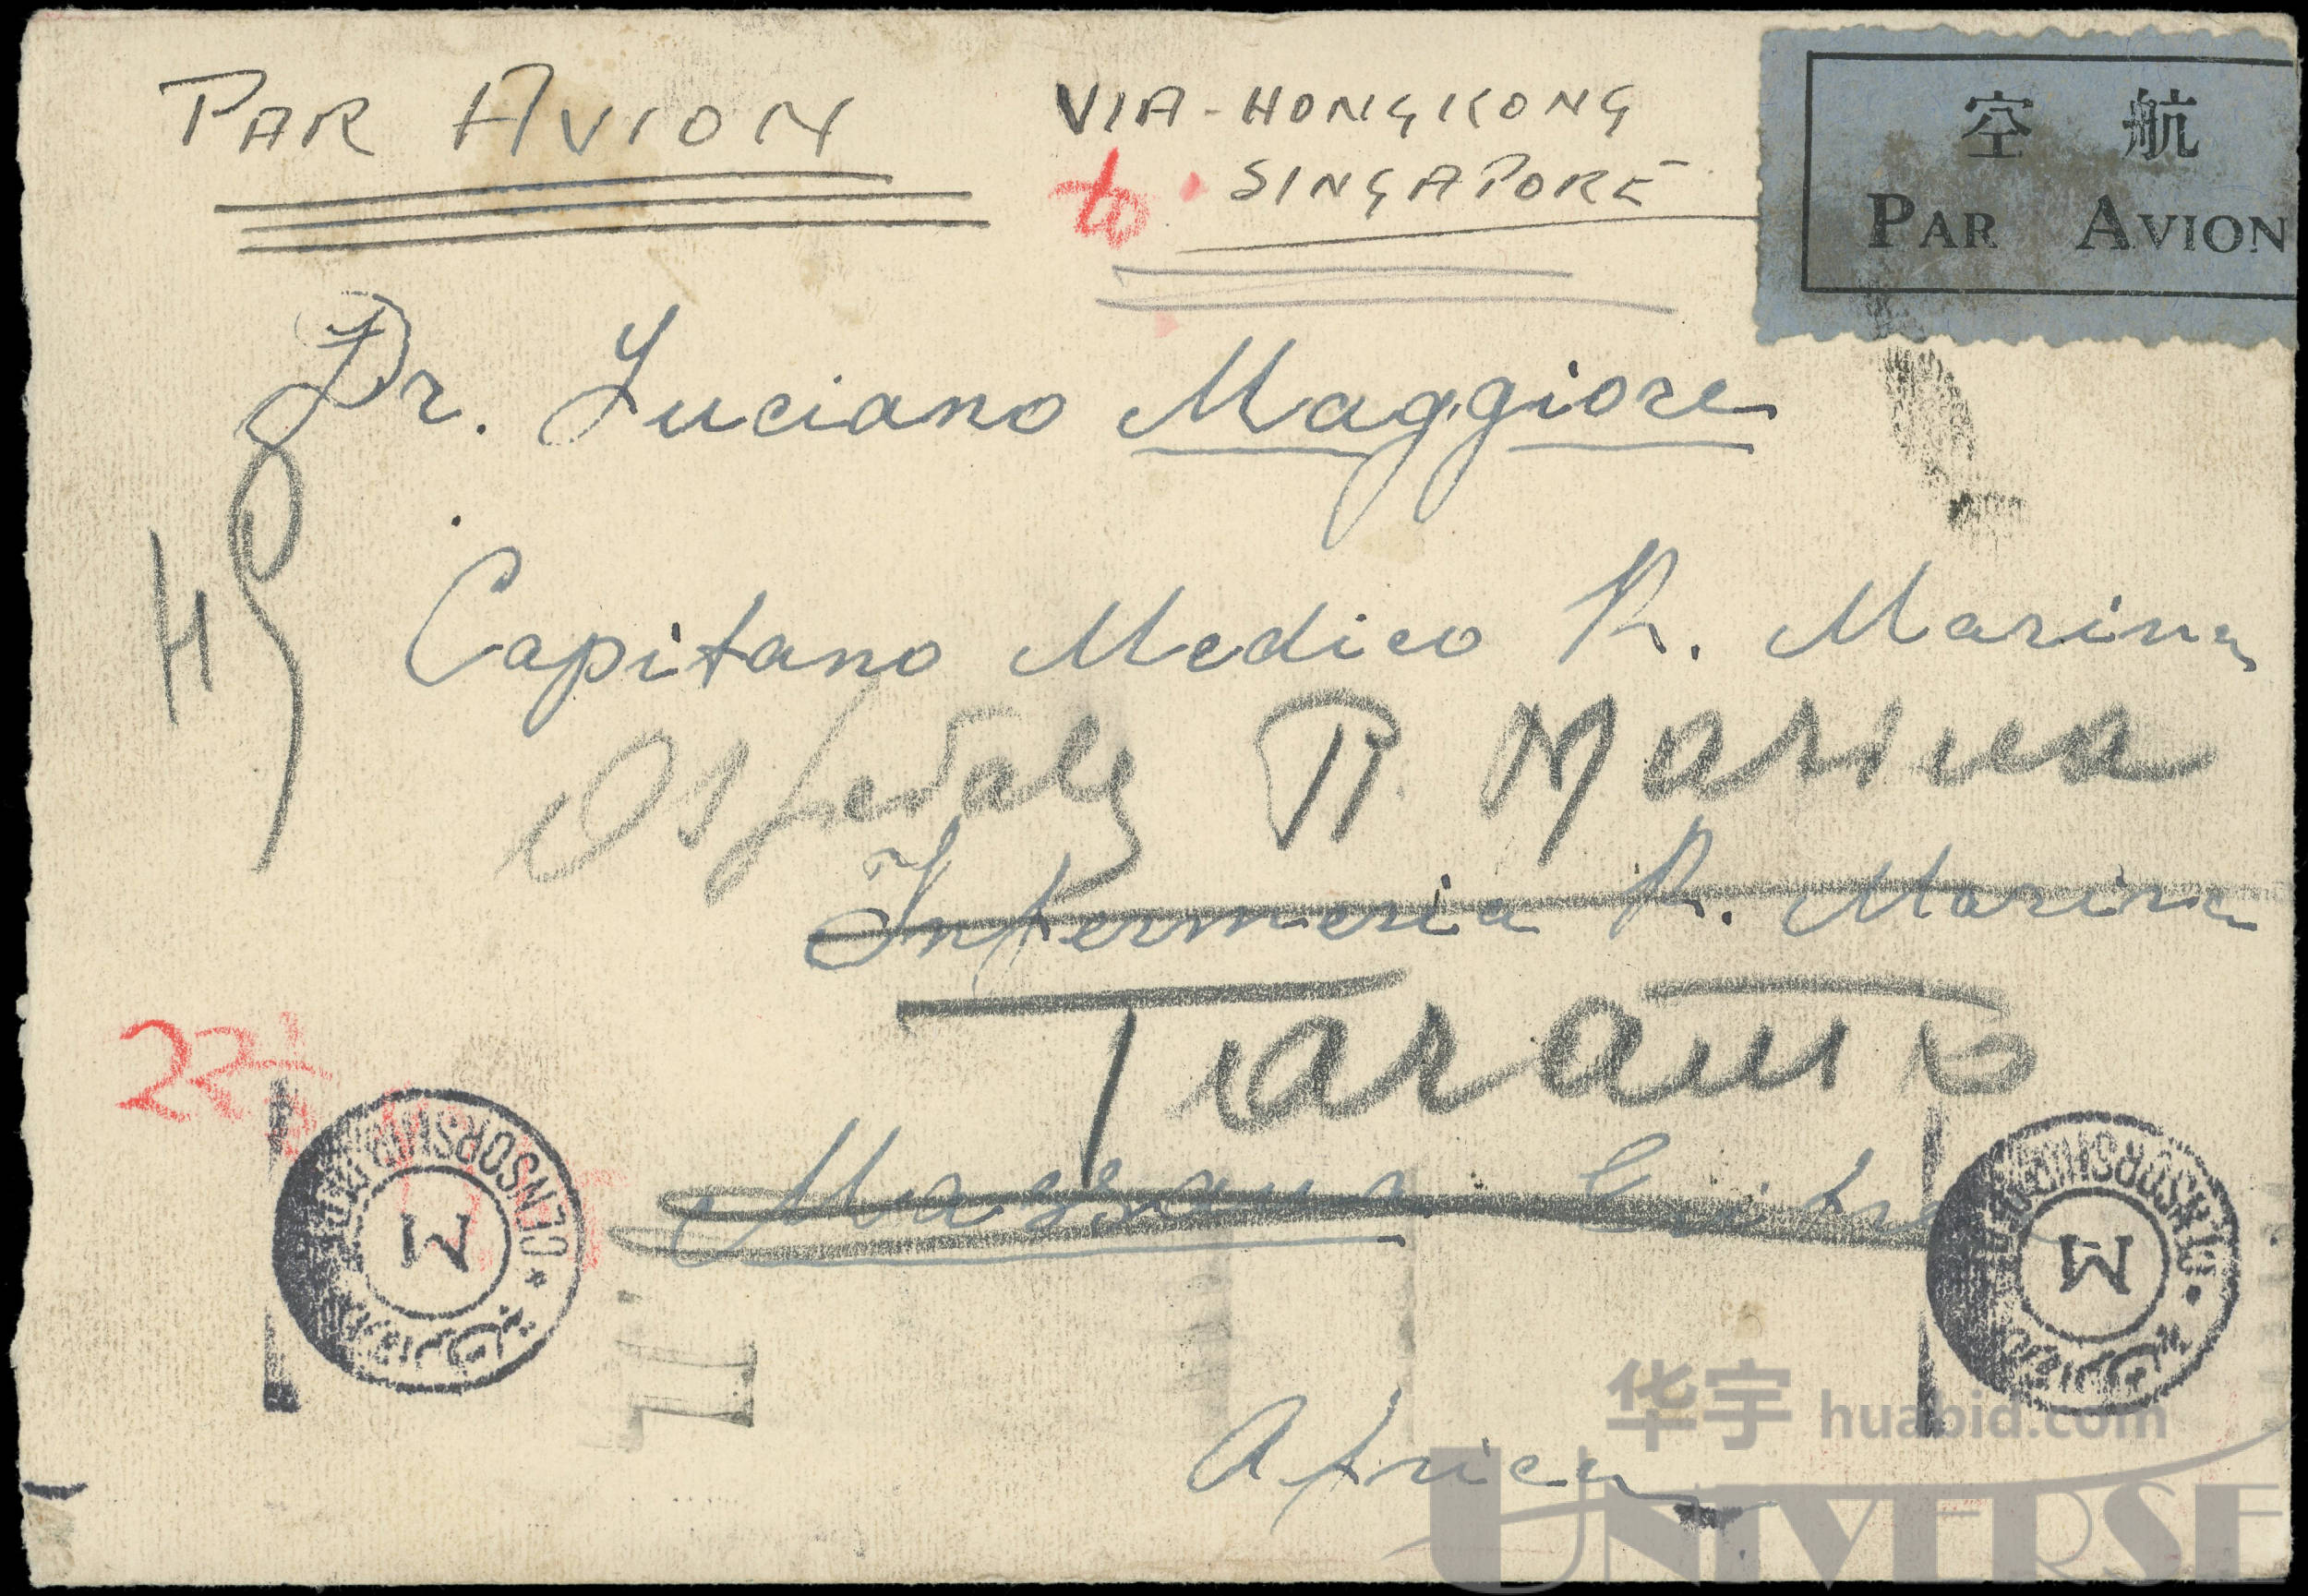 PAR AVION
VIA-HONGKONG
to SINGAPORE
空 航
PAR AVION
Dr. Luciano Maggiore
Capitano Medico R. Marina
Ospedale R. Marina
Infermeria R. Marina
Taranto
Massaua Eritrea
Africa
22
CENSORSHIP DEPT
M
CENSORSHIP DEPT
M
华宇 huabid.com
UNIVERSE